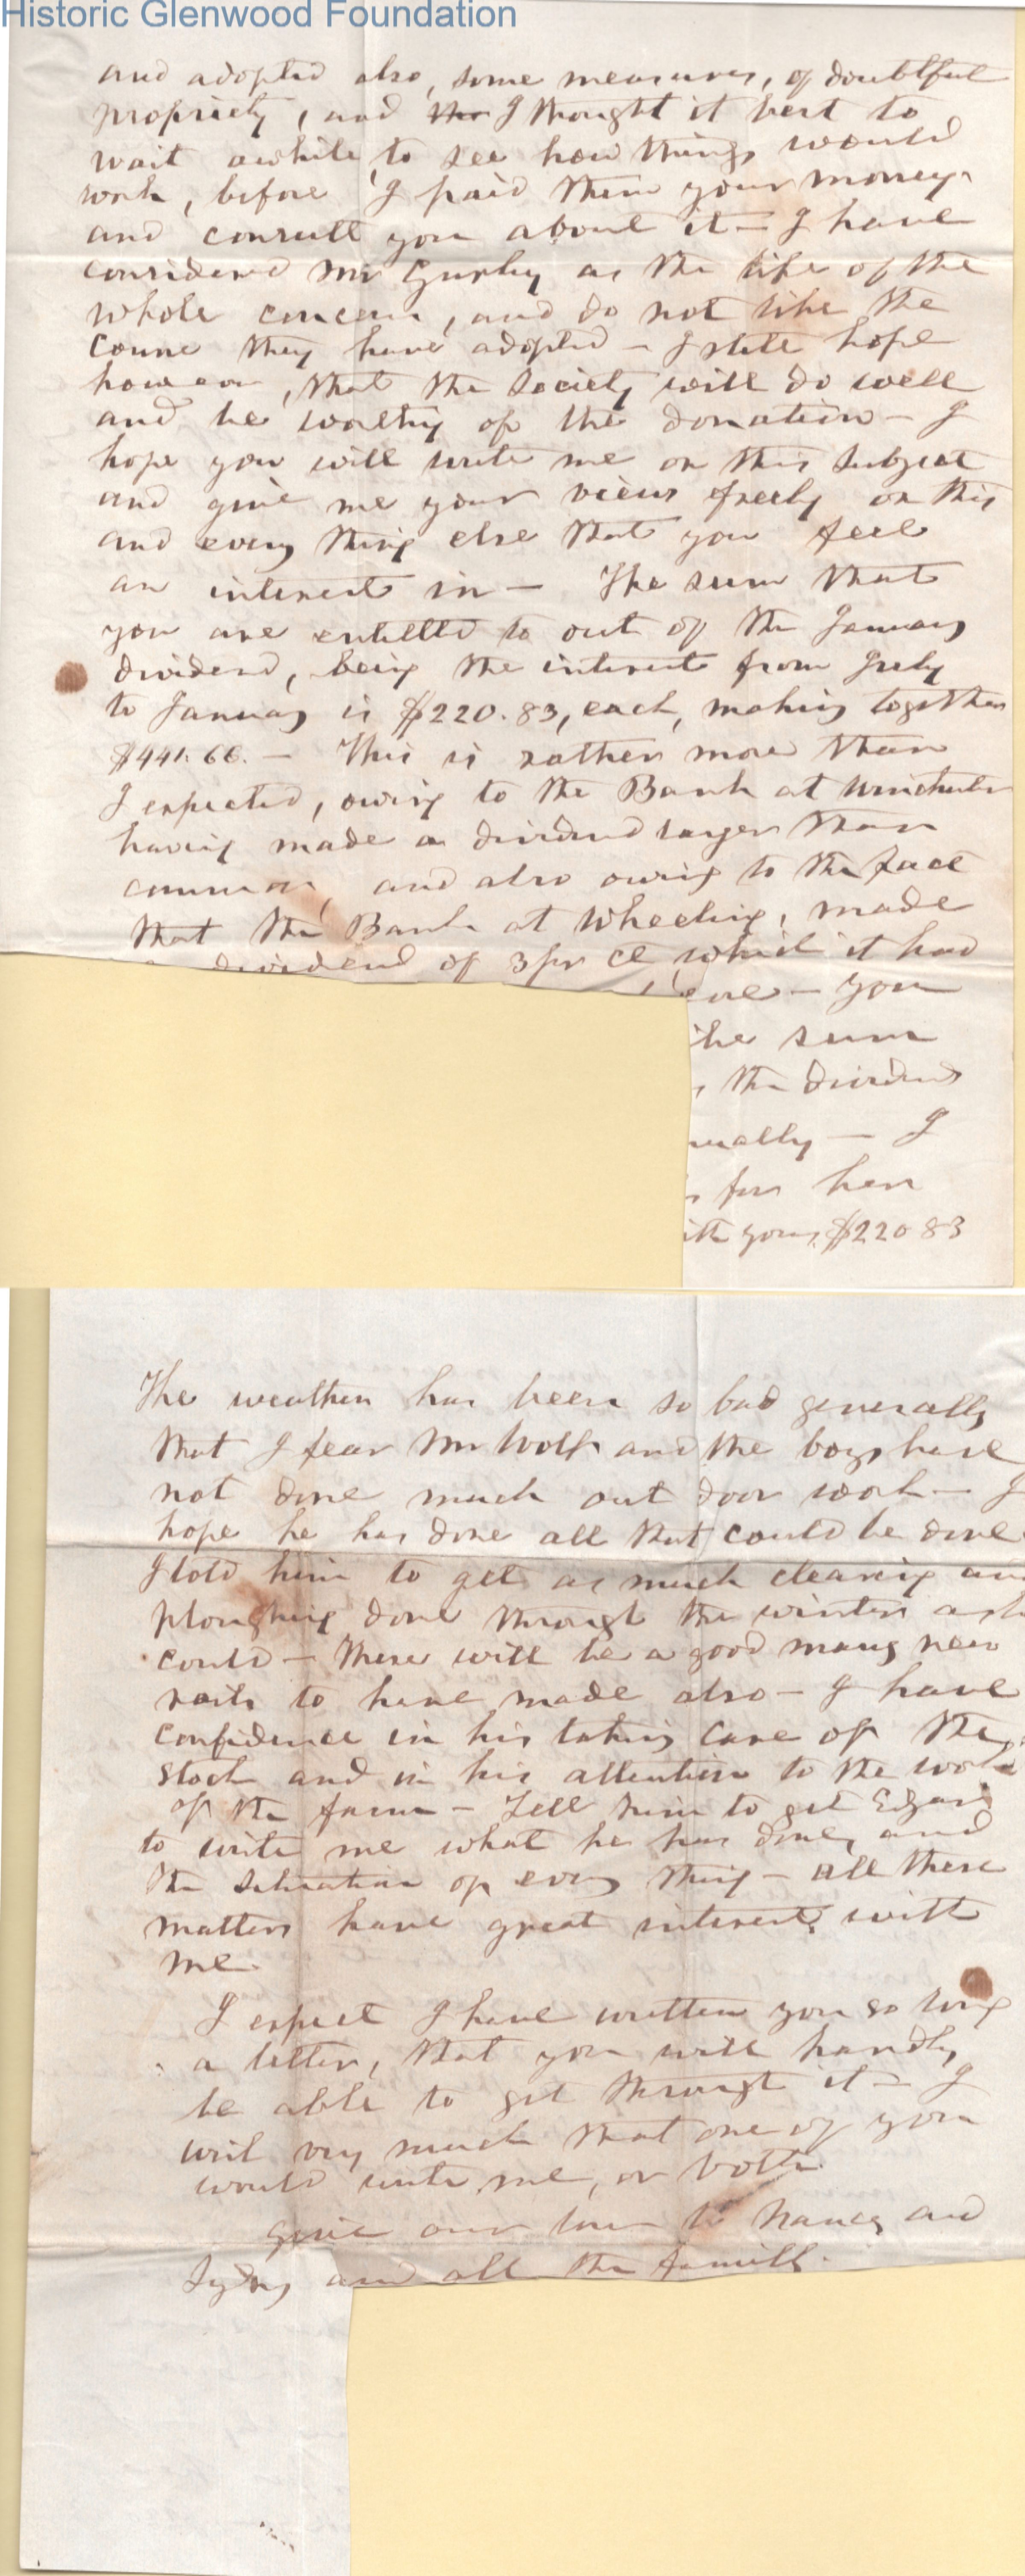 Historic Glenwood Foundation
and adopted also, some measures, of doubtful
propriety, and I thought it best to
wait awhile, to see how things would
work, before I paid them your money
and consult you about it — I have
considered Mr Gurley as the life of the
whole concern, and do not like the
course they have adopted — I still hope
however, that the Society will do well
and be worthy of the donation — I
hope you will write me on this subject
and give me your views freely on this
and every thing else that you feel
an interest in — The sum that
you are entitled to out of the January
dividend, being the interest from July
to January is $220.83, each, making together
$441.66. — This is rather more than
I expected, owing to the Bank at Winchester
having made a dividend larger than
common, and also owing to the fact
that the Bank at Wheeling, made
dividend of 3 pr Ct which it had
— you
the sum
, the dividend
nually — I
for her
ith yours, $220 83
The weather has been so bad generally
that I fear Mr Wolf and the boys have
not done much out door work — I
hope he has done all that could be done
I told him to get as much clearing an
ploughing done through the winter as h
could — there will be a good many new
rails to have made also — I have
confidence in his taking care of the
stock and in his attention to the work
of the farm — Tell him to get Edgar
to write me what he has done, and
the situation of every thing — all these
matters have great interest with
me.
I expect I have written you so long
a letter, that you will hardly
be able to get through it — I
wish very much that one of you
would write me, or both.
give our love to Nancy and
and all the family.